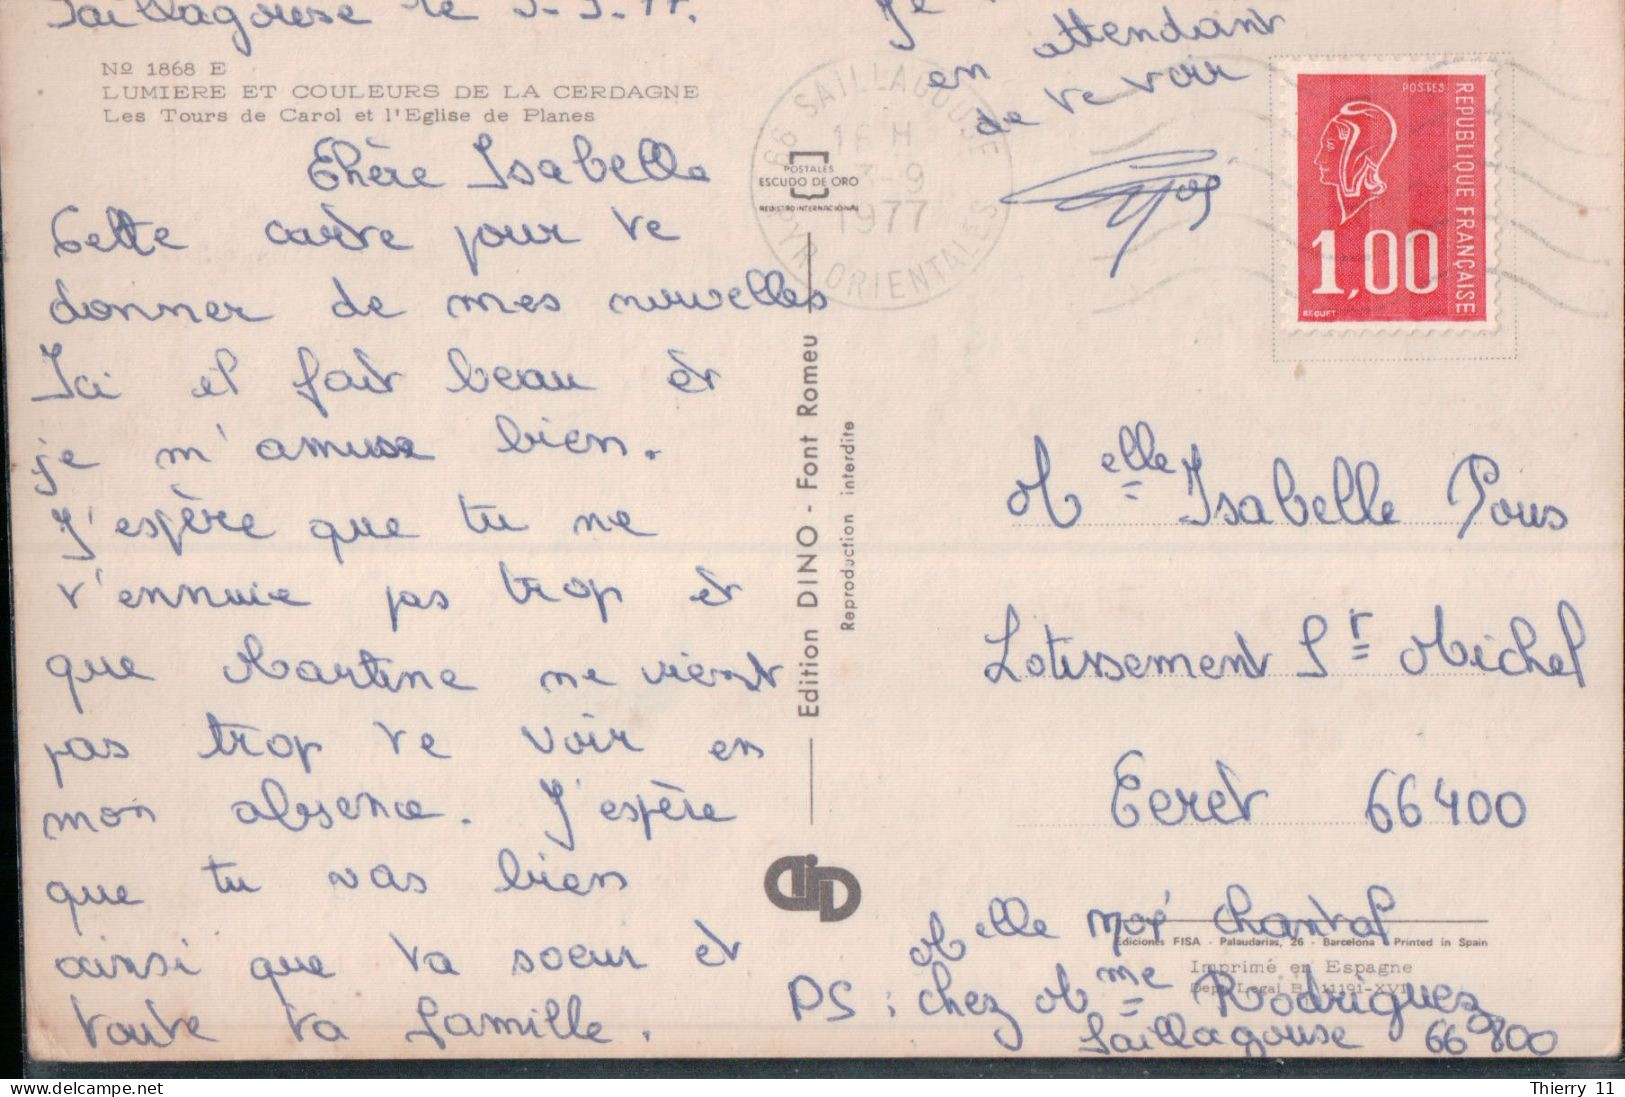 Saillagouse le 3-9-77.
Nº 1868 E
LUMIERE ET COULEURS DE LA CERDAGNE
Les Tours de Carol et l'Eglise de Planes
Chère Isabelle
Cette carte pour te
donner de mes nouvelles
Ici il fait beau et
je m'amuse bien.
J'espère que tu ne
t'ennuie pas trop et
que Martine ne vient
pas trop te voir en
mon absence. J'espère
que tu vas bien
ainsi que ta soeur et
toute ta famille.
Je
en attendant
de te voir
66 SAILLAGOUSE
16 H
3-9
1977
PYR. ORIENTALES
POSTALES
ESCUDO DE ORO
REGISTRO INTERNACIONAL
POSTES
REPUBLIQUE FRANÇAISE
1,00
BEQUET
Edition DINO - Font Romeu
Reproduction interdite
Melle Isabelle Pous
Lotissement St Michel
Ceret 66400
DID
Melle Moé Chantal
Ediciones FISA - Palaudarias, 26 - Barcelona Printed in Spain
Imprimé en Espagne
Dep. Legal B. 11191-XVI
PS : chez Mme Rodriguez
Saillagouse 66800
Thierry 11